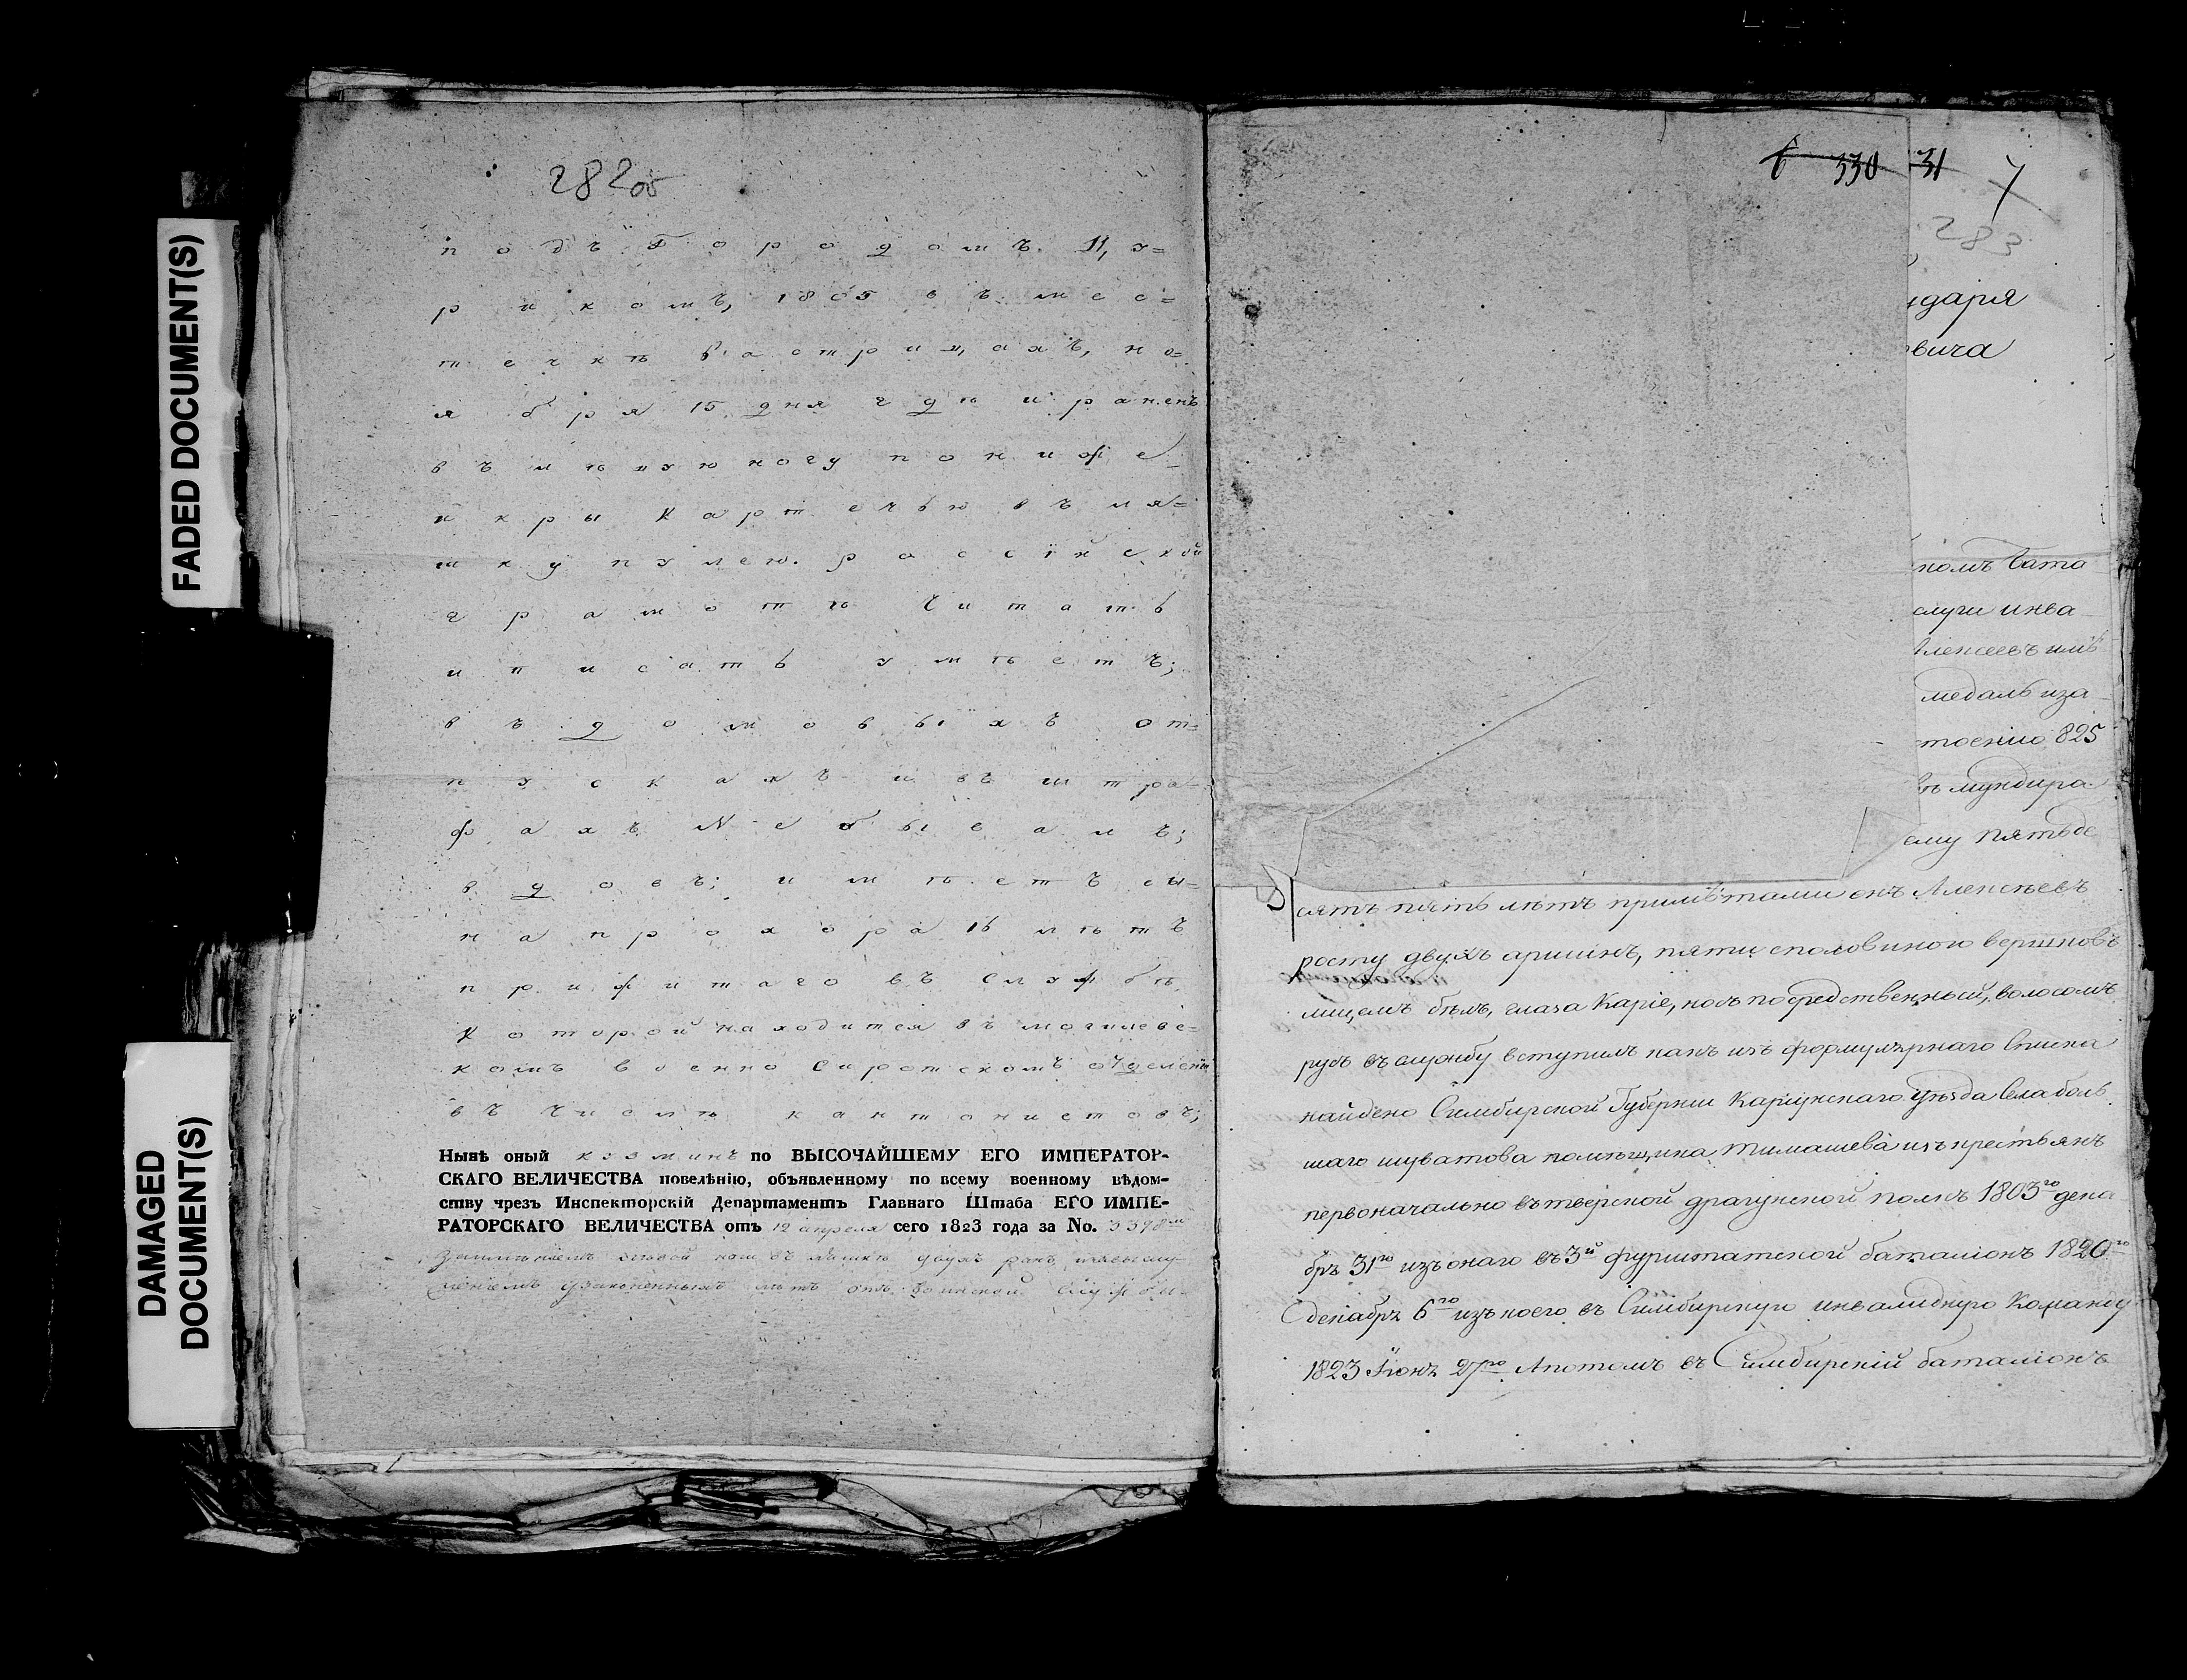 FADED DOCUMENT(S)
DAMAGED
DOCUMENT(S)
282об
подъ Городомъ Цу=
рикомъ, 1805 въ мес=
течкѣ Вастрицахъ, но=
я бря 15 дня гдѣ и раненъ
въ лѣвую ногу пониже
икры Картечью въ ля=
шку пулею. россійской
грамотѣ Читать
и писать умѣетъ;
въ домовыхъ от=
пускахъ и въ штра=
фахъ Не бывалъ;
вдовъ; имѣетъ сы=
на прохора 16 лѣтъ
прижитаго въ службѣ
Которой находится въ могилевс=
комъ военно Сиротскомъ отделеніи
въ Числѣ кантонистовъ;
Нынѣ оный козминъ по ВЫСОЧАЙШЕМУ ЕГО ИМПЕРАТОР-
СКАГО ВЕЛИЧЕСТВА повелѣнію, объявленному по всему военному вѣдом-
ству чрезъ Инспекторскій Департаментъ Главнаго Штаба ЕГО ИМПЕ-
РАТОРСКАГО ВЕЛИЧЕСТВА отъ 12 апреля сего 1823 года за No.
двухъ ранъ
узаконенныхъ лѣтъ отъ воинской службы
6 330 31 7
283
ударя
овича
номъ Бата
слуги инва
Алексеевъ имѣ
медаль иза
тоенію 825
мундира
ему пятьде
сятъ пять лѣтъ примѣтами онъ Алексѣевъ
росту двухъ аршинъ, пяти споловиною вершковъ
лицемъ бѣлъ, глаза Каріе, носъ посредственный, волосомъ
русъ въ службу вступилъ какъ изъ формулярнаго Списка
найдено Симбирской Губерніи Карсунскаго уѣзда Села боль
шаго шуватова помѣщика Тимашева изъ крестьянъ
первоначально въ тверской драгунской полкъ 1803го дека
брѣ 31го изъ онаго въ 3й фурштатской баталіонъ 1820го
декабрѣ 6го изъ коего въ Симбирскую инвалидную Команду
1823 Іюнѣ 27го Апотомъ въ Симбирскій баталіонъ